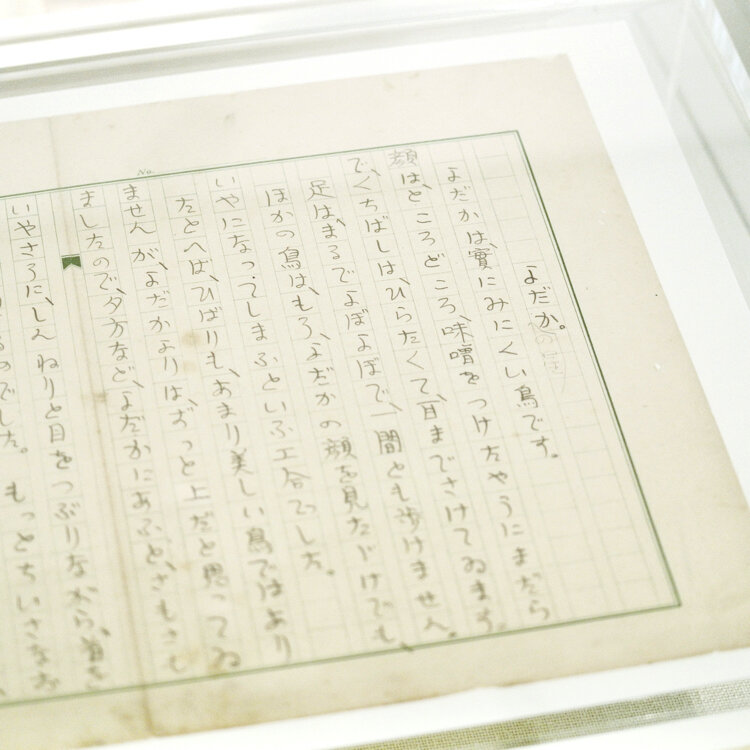 No.
よだか。
(のほし)
よだかは、實にみにくい鳥です。
顔は、ところどころ、味噌をつけたやうにまだら
で、くちばしは、ひらたくて、耳までさけてゐます。
足は、まるでよぼよぼで、一間とも歩けません。
ほかの鳥は、もう、よだかの顔を見たゞけでも、
いやになってしまふといふ工合でした。
たとへば、ひばりも、あまり美しい鳥ではあり
ませんが、よだかよりは、ずっと上だと思ってゐ
ましたので、夕方など、よだかにあふと、さもさも
いやさうに、しんねりと目をつぶりながら、首を
るのでした。もっとちいさなお